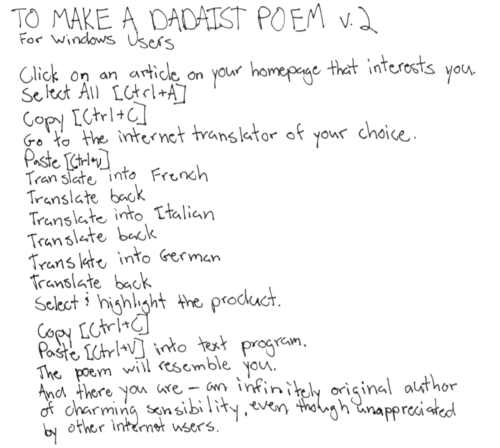 TO MAKE A DADAIST POEM v.2
For Windows Users
Click on an article on your homepage that interests you.
Select All [Ctrl+A]
Copy [Ctrl+C]
Go to the internet translator of your choice.
Paste [Ctrl+V]
Translate into French
Translate back
Translate into Italian
Translate back
Translate into German
Translate back
Select & highlight the product.
Copy [Ctrl+C]
Paste [Ctrl+V] into text program.
The poem will resemble you.
And there you are – an infinitely original author
of charming sensibility, even though unappreciated
by other internet users.